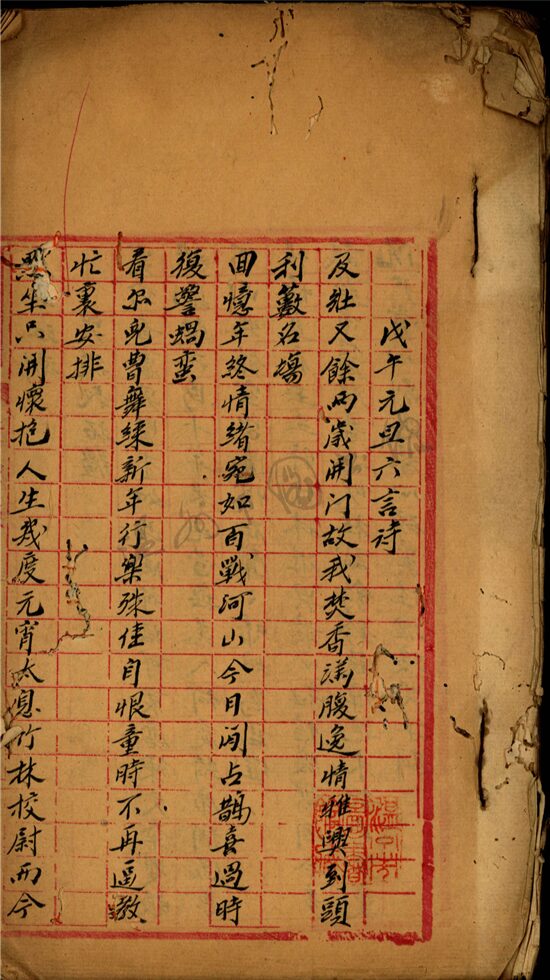 戊午元旦六言诗
及壯又餘兩歲開门故我焚香满腹逸情雅興到頭
利藪名塲
回憶年終情緒宛如百戰河山今日闲占鵲喜過時
復警蝸蛮
看尔兒曹舞綵新年行樂殊佳自恨童時不再逼教
忙裏安排
坐只開懷抱人生幾度元宵太息竹林校尉而今